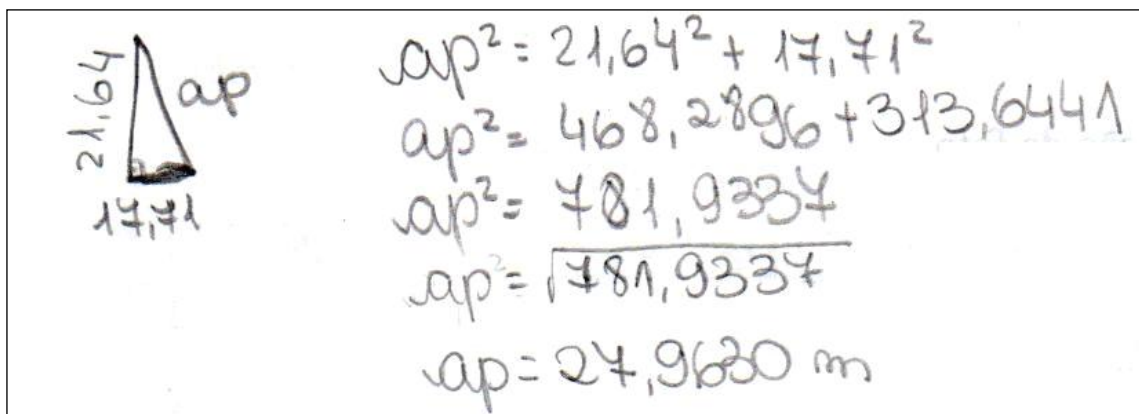 21,64
ap
17,71
ap² = 21,64² + 17,71²
ap² = 468,2896 + 313,6441
ap² = 781,9337
ap² = √781,9337
ap = 27,9630 m